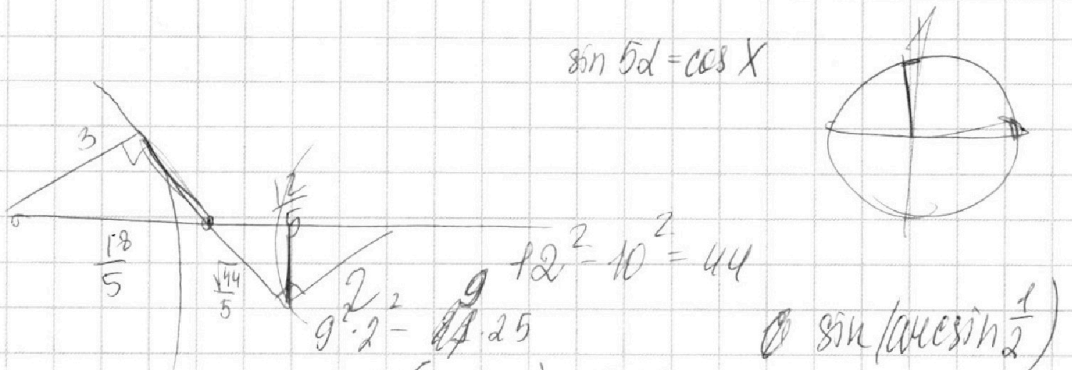 sin 5α = cos x
3
18/5
√44/5
12/5
12² - 10² = 44
9² · 2² - 9 · 25
sin(arcsin 1/2)